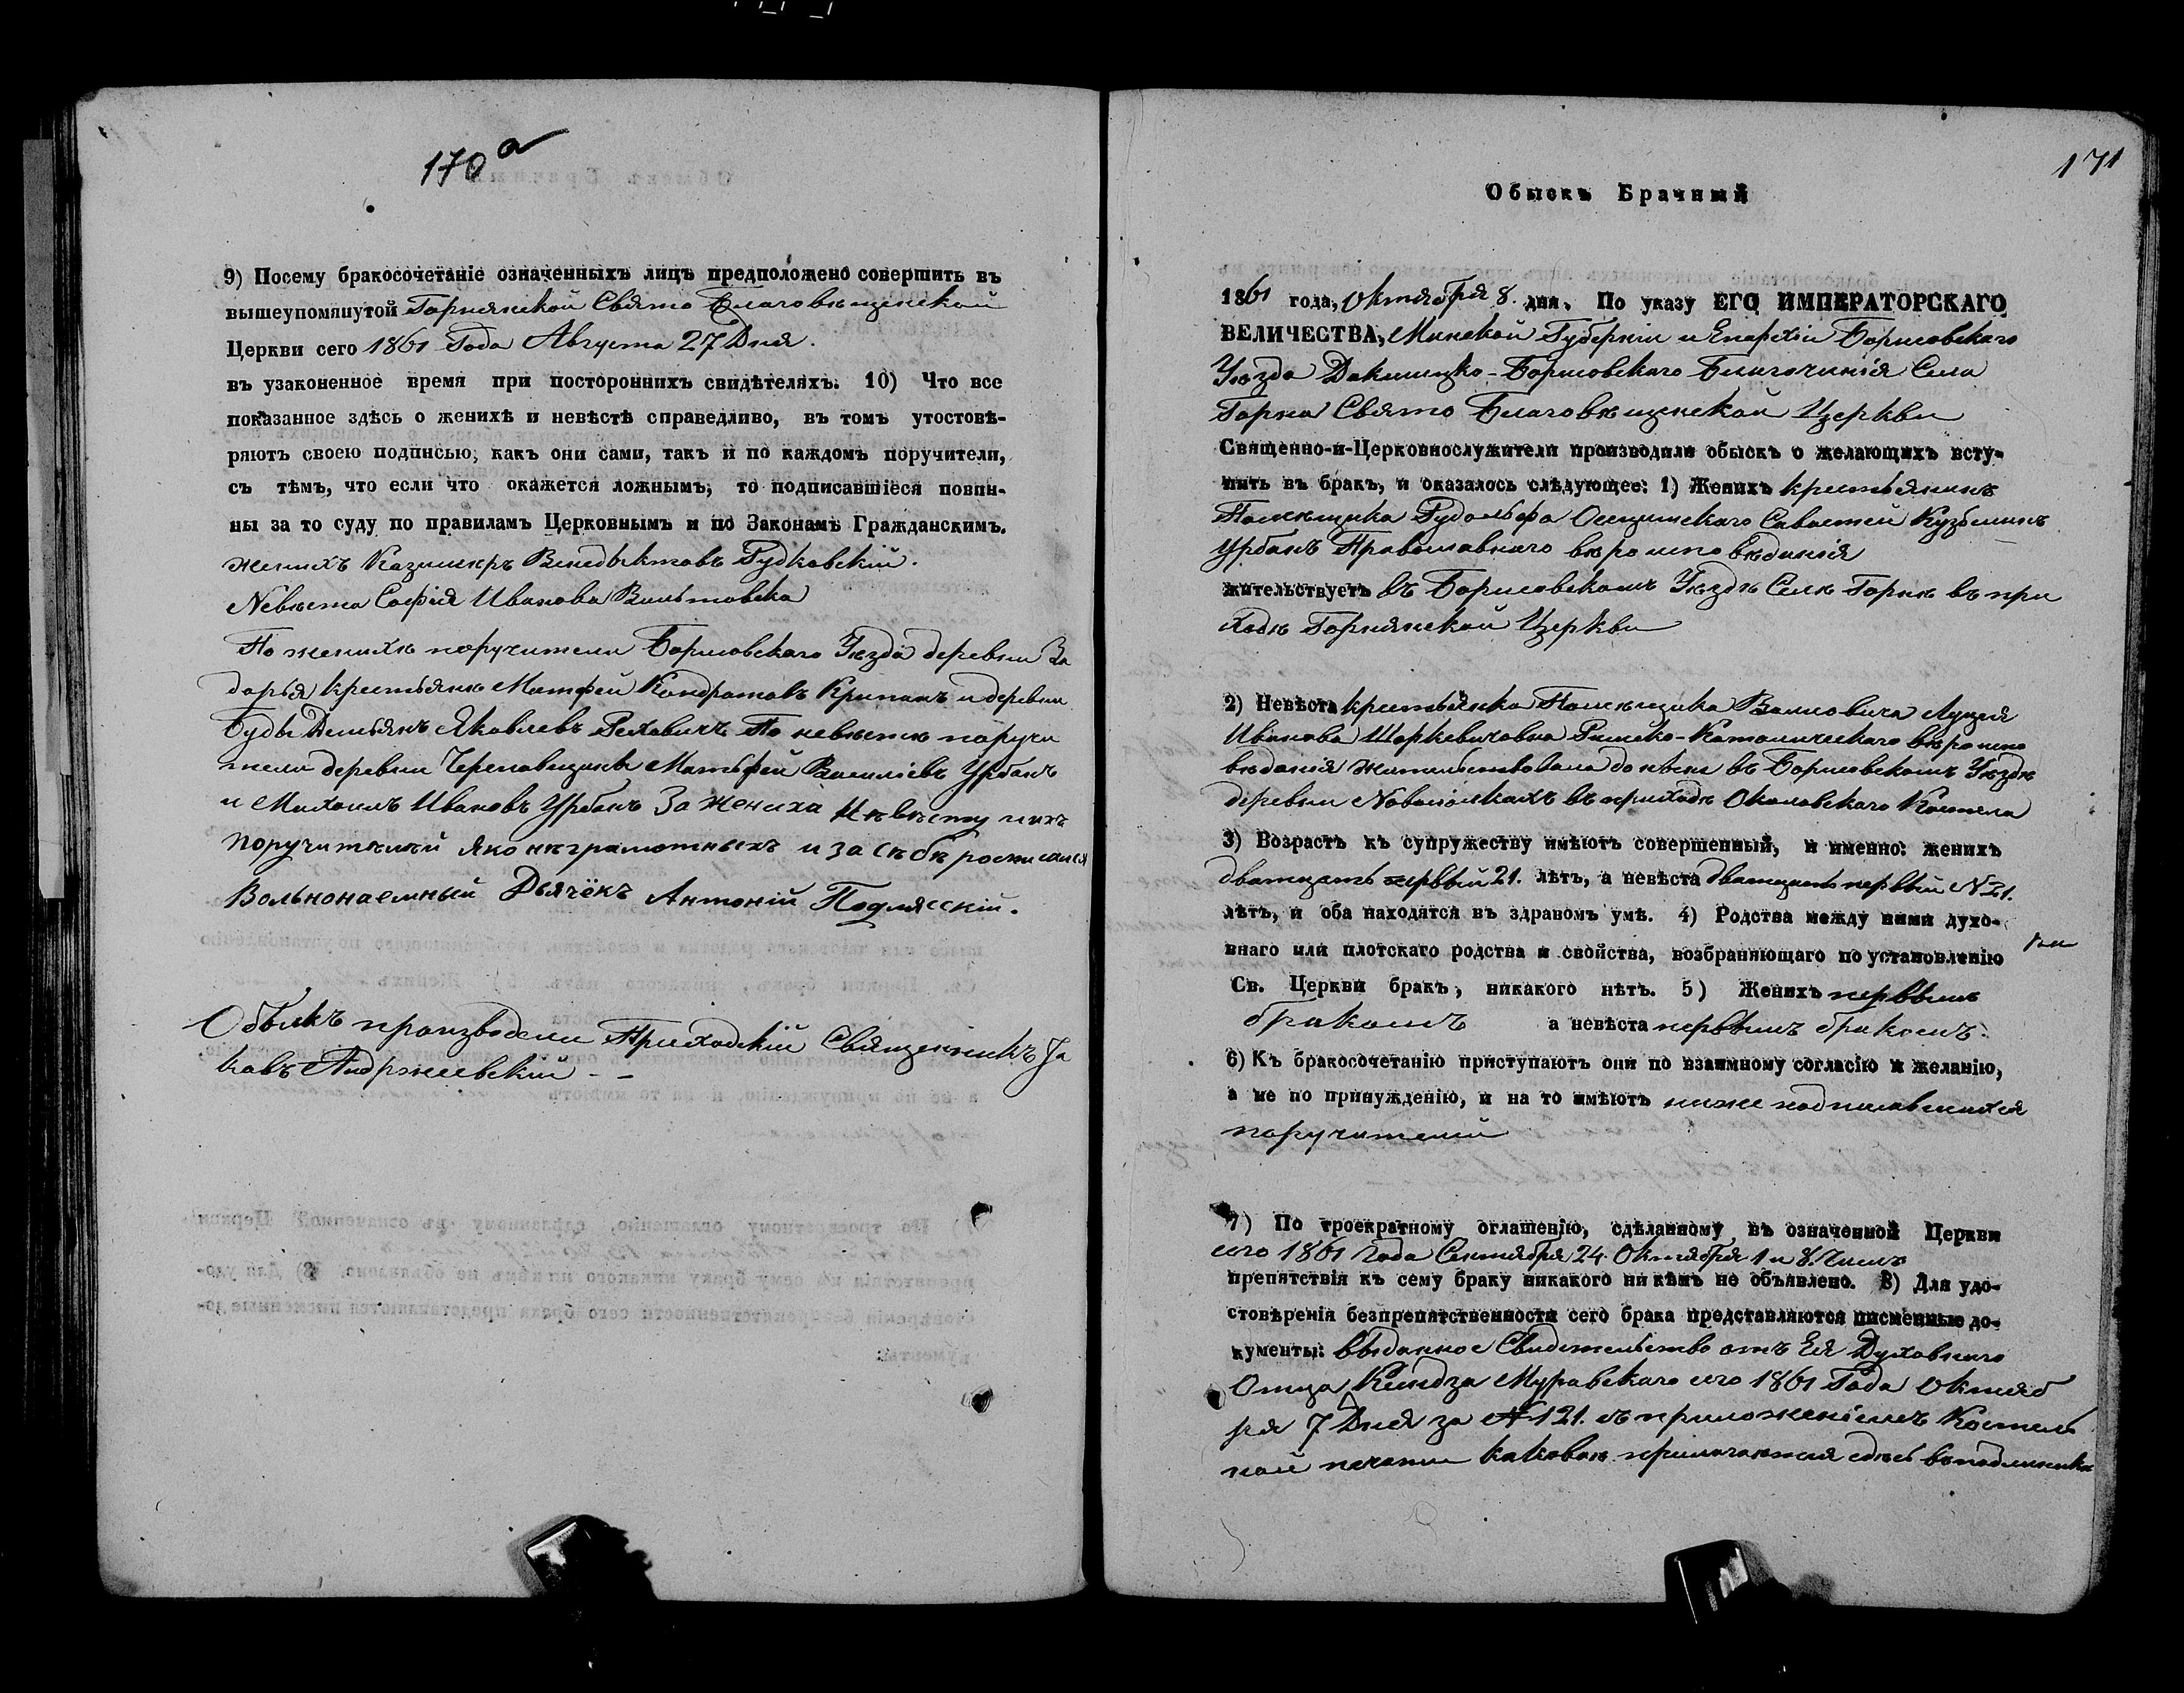 170 а
9) Посему бракосочетаніе означенныхъ лицъ предположено совершить въ
вышеупомянутой Горнянской Свято Благовѣщенской
Церкви сего 1861 Года Августа 27 Дня.
въ узаконенное время при постороннихъ свидѣтеляхъ. 10) Что все
показанное здѣсь о женихѣ и невѣстѣ справедливо, въ томъ утостовѣ-
ряютъ своею подписью, какъ они сами, такъ и по каждомъ поручители,
съ тѣмъ, что если что окажется ложнымъ, то подписавшіеся повин-
ны за то суду по правиламъ Церковнымъ и по Законамъ Гражданскимъ.
женихъ Казимиръ Венедыктовъ Рудковскій.
Невѣста Софія Иванова Вильтовска
По женихѣ поручители Борисовскаго Уѣзда деревни За
дорья крестьяне Матфей Кондратовъ и деревни
Буды Демьянъ Яковлевъ По невѣстѣ поручи
тели деревни Матьфей Василіевъ Урбанъ
и Михаилъ Ивановъ Урбанъ За жениха невѣсту и ихъ
поручителей яко неграмотныхъ и за себѣ росписался
Вольнонаемный Дьячёкъ Антоній Подлясскій.
Обыскъ производили Приходскій Священникъ Іа
ковъ Андржеевскій - -
171
Обыскъ Брачный
1861 года, Октября 8. дня. По указу ЕГО ИМПЕРАТОРСКАГО
ВЕЛИЧЕСТВА, Минской Губерніи и Епархіи Борисовскаго
Уѣзда Докшицко-Борисовскаго Благочинія Села
Горна Свято Благовѣщенской Церкви
Священно-и-Церковнослужители производили обыскъ о желающихъ всту-
пить въ бракъ, и оказалось слѣдующее: 1) Женихъ крестьянинъ
Помѣщика Рудольфа Саватей Кузьминъ
Урбанъ Православнаго вѣроисповѣданія
жительствуетъ въ Борисовскомъ Уѣздѣ Селѣ Горнѣ въ при
ходѣ Горнянской Церкви
2) Невѣста крестьянка Помѣщика Валиовича Луция
Иванова Римско-Католическаго вѣроиспо
вѣданія жительствовала до нѣсе в Борисовскомъ Уѣздѣ
деревни Новосіолкахъ въ приходѣ Околовскаго Костела
3) Возрастъ къ супружеству имѣютъ совершенный, и именно: женихъ
дватцать первый 21. лѣтъ, а невѣста дватцать первый N 21.
лѣтъ, и оба находятся въ здравомъ умѣ. 4) Родства между ними духо-
внаго или плотскаго родства и свойства, возбраняющаго по установленію
Св. Церкви бракъ, никакого нѣтъ. 5) Женихъ первымъ
бракомъ а невѣста первымъ бракомъ.
6) Къ бракосочетанію приступаютъ они по взаимному согласію и желанію,
а не по принужденію, и на то имѣютъ ниже подписавшихся
поручителей
7) По троекратному оглашенію, сдѣланному въ означенной Церкви
сего 1861 Года Сентября 24. Октября 1 и 8. Числъ
препятствія къ сему браку никакого никѣмъ не объявлено. 8) Для удо-
стовѣренія безпрепятственности сего брака представляются писменные до-
кументы: выданное Свидетельство отъ Ея Духовнаго
Отца Ксиндза Муравскаго сего 1861 Года Октяб
ря 7 Дня за N 121. съ приложеніемъ Костель
ной печати каковое прилагается здѣсь в подлинника